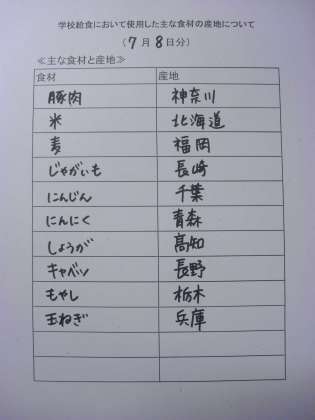 学校給食において使用した主な食材の産地について
(7月8日分)
≪主な食材と産地≫
食材 産地
豚肉 神奈川
米 北海道
麦 福岡
じゃがいも 長崎
にんじん 千葉
にんにく 青森
しょうが 高知
キャベツ 長野
もやし 栃木
玉ねぎ 兵庫